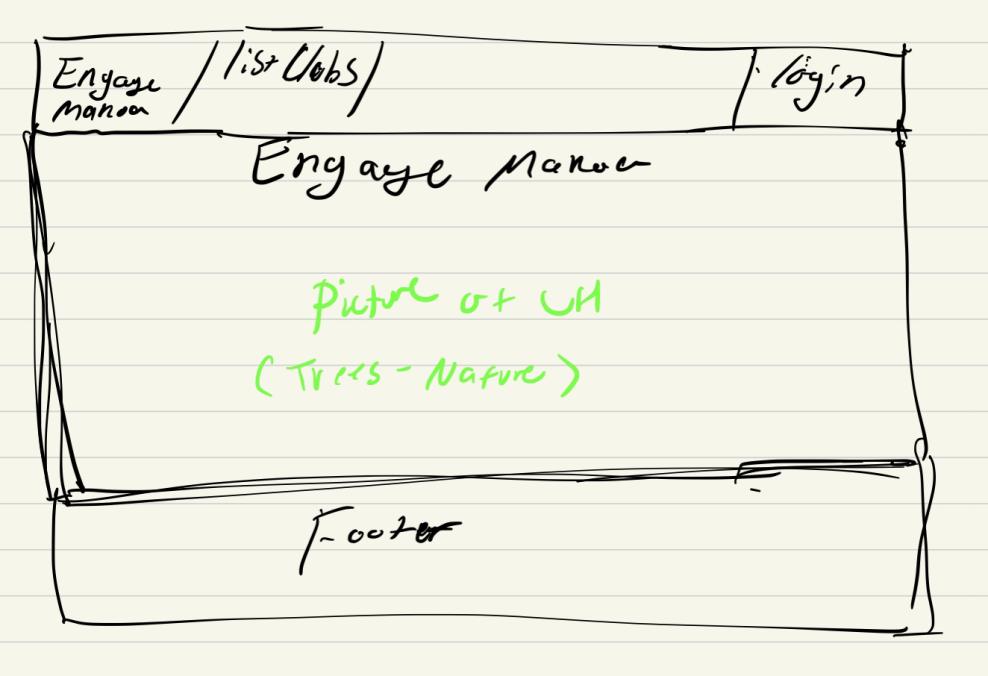 Engage Manoa
list Clubs
login
Engage Manoa
Picture of UH
(Trees - Nature)
Footer